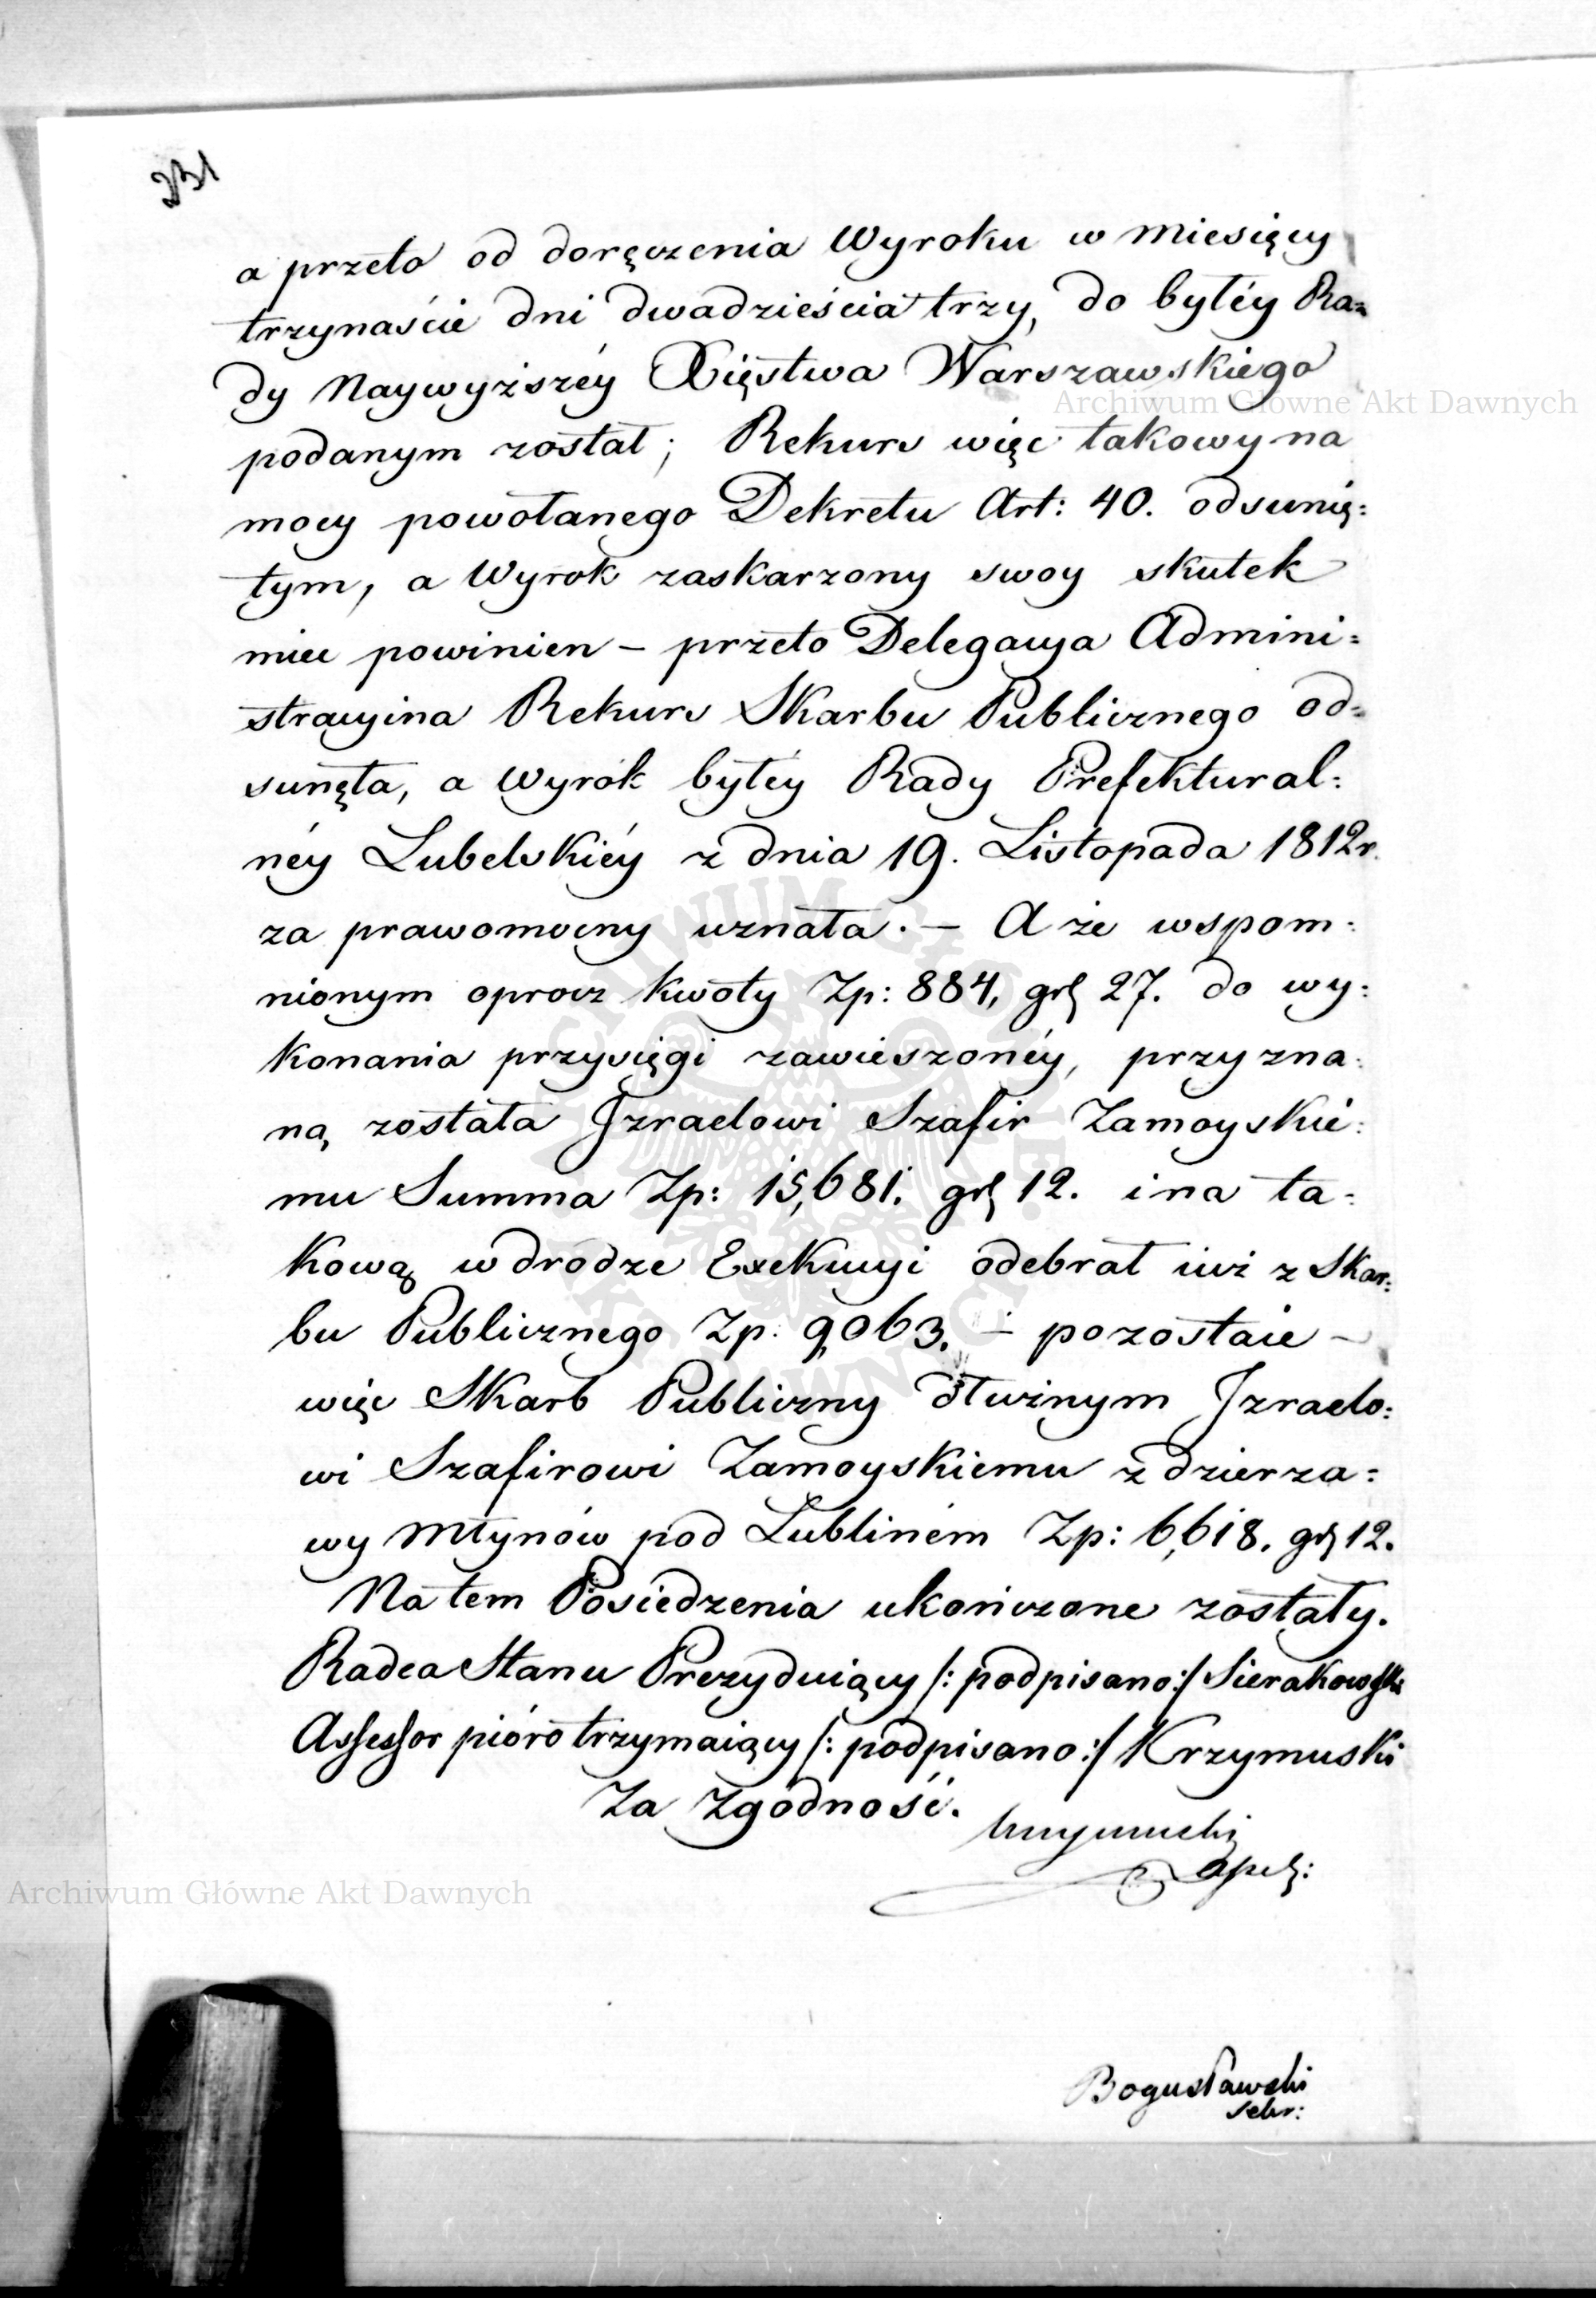 231
a przeto od doręczenia Wyroku w miesięcy
trzynaście dni dwadzieścia trzy, do byłéy Ra=
dy Naywyższéy Xięstwa Warszawskiego
podanym został; Rekurs więc takowy na
mocy powołanego Dekretu Art: 40. odsunię:
tym, a Wyrok zaskarzony swoy skutek
miec powinien – przeto Delegacya Admini=
stracyina Rekurs Skarbu Publicznego od=
sunęła, a Wyrok byłéy Rady Prefektural:
néy Lubelskiéy z dnia 19. Listopada 1812r.
za prawomocny uznała. – A że wspom:
nionym oprocz kwoty Zp: 884, gr 27. do wy:
konania przysięgi zawieszonéy, przyzna:
ną została Izraelowi Szafir Zamoyskie:
mu Summa Zp: 15,681. gr 12. i na ta:
kową w drodze Exekucyi odebrał iuż z Skar:
bu Publicznego Zp: 9,063. – pozostaie –
więc Skarb Publiczny dłużnym Izraelo:
wi Szafirowi Zamoyskiemu z dzierza=
wy Młynów pod Lublinem Zp: 6,618. gr 12.
Na tem Posiedzenia ukończone zostały.
Radca Stanu Prezyduiący /: podpisano :/ Sierakowski
Assessor pióro trzymaiący /: podpisano :/ Krzymuski
Za Zgodność.
Krzymuski
Bogusławski
Sekr:
Archiwum Główne Akt Dawnych
Archiwum Główne Akt Dawnych